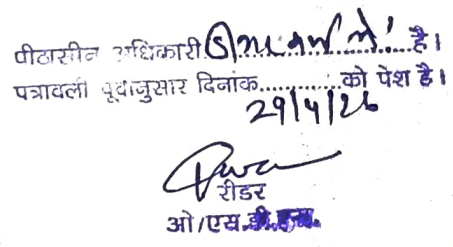 पीठासीन अधिकारी ............ है।
पत्रावली पूर्वानुसार दिनांक............को पेश है।
29/4/26
रीडर
ओ/एस.डी.एम.